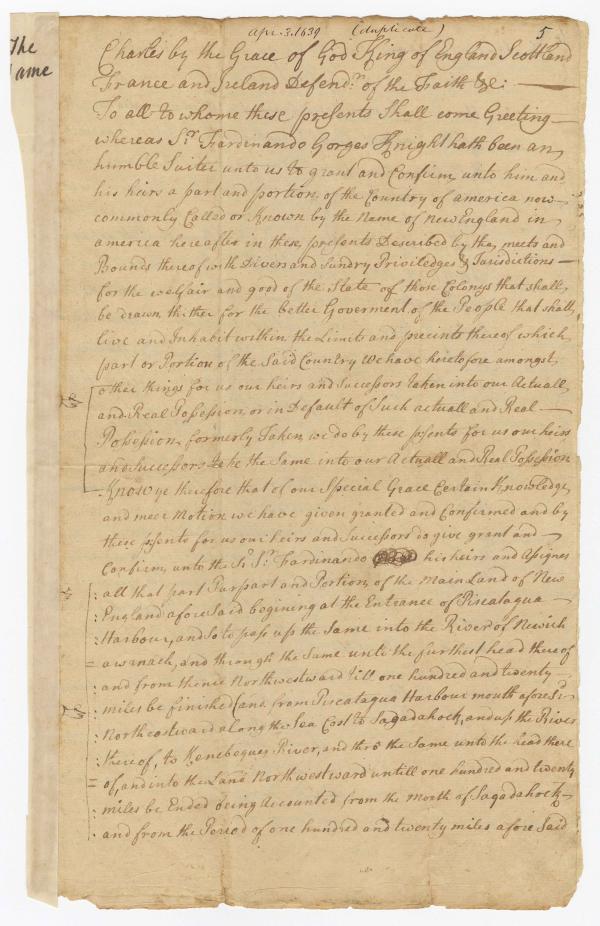 Apr. 3. 1639 (duplicate) 5
The
Same
Charles by the Grace of God King of England Scottland
France and Ireland Defendr. of the Faith &c:
To all to whome these presents Shall come Greeting
whereas Sr. Fardinando Gorges Knight hath been an
humble Suiter unto us to grant and Confirm unto him and
his heirs a part and portion of the Country of america now
commonly Called or Known by the Name of New England in
america hereafter in these presents Described by the meets and
Bounds thereof with Divers and Sundry Priviledges & Jurisdictions
for the welfair and good of the State of those Colonys that shall
be drawn thither for the better Goverment of the People that shall
live and Inhabit within the Limits and precints thereof which
part or Portion of the Said Country We have heretofore amongst
other things for us our heirs and Successors taken into our Actuall
and Real Possession or in Default of Such actuall and Real
Possession formerly Taken we do by these psents for us our heirs
and Successors take the Same into our Actuall and Real Possession
Know ye therefore that of our Special Grace Certain Knowledge
and meer Motion we have given granted and Confirmed and by
these psents for us our heirs and Successors do give grant and
Confirm unto the Sd. Sr. Fardinando his heirs and Assignes
all that part Purpart and Portion of the Main Land of New
England aforesaid begining at the Entrance of Piscataqua
Harbour, and So to pass up the Same into the River of Newich
awanach, and through the Same unto the furthest head there of
and from thence Northwestward till one hundred and twenty
miles be finished (and from Piscataqua Harbour mouth aforesd.
Northeastward along the Sea Cost to Sagadahock, and up the River
thereof, to Kenebeques River, and thro the Same unto the head there
of, and into the Land Northwestward untill one hundred and twenty
miles be Ended being Accounted from the Mouth of Sagadahock
and from the Period of one hundred and twenty miles afore Said